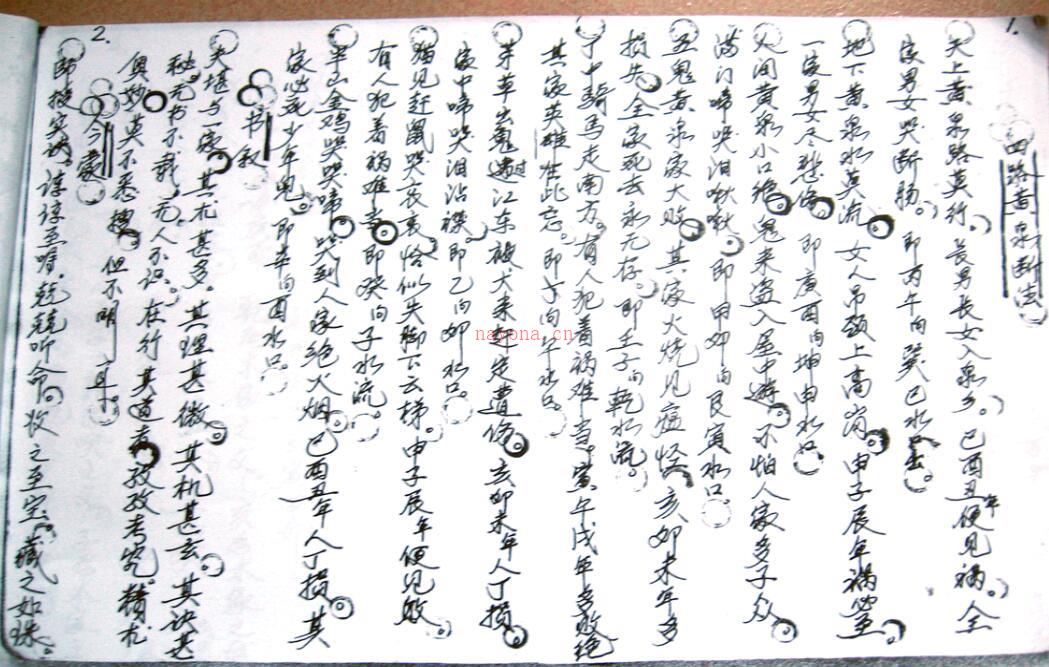 1.
四路黄泉断法
天上黄泉路莫行。长男长女入泉乡。巳酉丑年便见祸。全
家男女哭断肠。即丙午向巽巳水口出。
地下黄泉水莫流 女人吊颈上高岗 申子辰年祸必至。
一家男女尽悲伤 即庚酉向坤申水口
人间黄泉小口绝 鬼来盗入屋中游 不怕人家多子众
满门啼哭泪啾啾 即甲卯向艮寅水口。
五鬼黄泉家大败 其家火烧见瘟怪 亥卯未年多
损失 全家死去永元存。即壬子向乾水流。
丁中骑马走南方。有人犯着祸难当。寅午戌年多败绝
其家英雄在此忘。即丁向午水口。
茅草出鬼过江东 被犬来赶定遭伤。亥卯未年人丁损
家中啼哭泪沾襟。即乙向卯水口。
猫见赶鼠哭哀哀 恰似失脚下云梯。申子辰年便见败
有人犯着祸难 即癸向子水流。
半山金鸡哭哭啼 哭到人家绝火烟 巳酉丑年人丁损 其
家必死少年鬼。即辛向酉水口。
书叙
夫堪与一家 其术甚多。其理甚微。其机甚玄。其诀甚
秘。元书不载，元人不识。在行其道者 孜孜考究。精尤
奥妙 莫不悉搜。但不明
今蒙
2.
即授实诀。谆谆至嘱。兢兢听命 收之至宝。藏之如珠。
nayona.cn